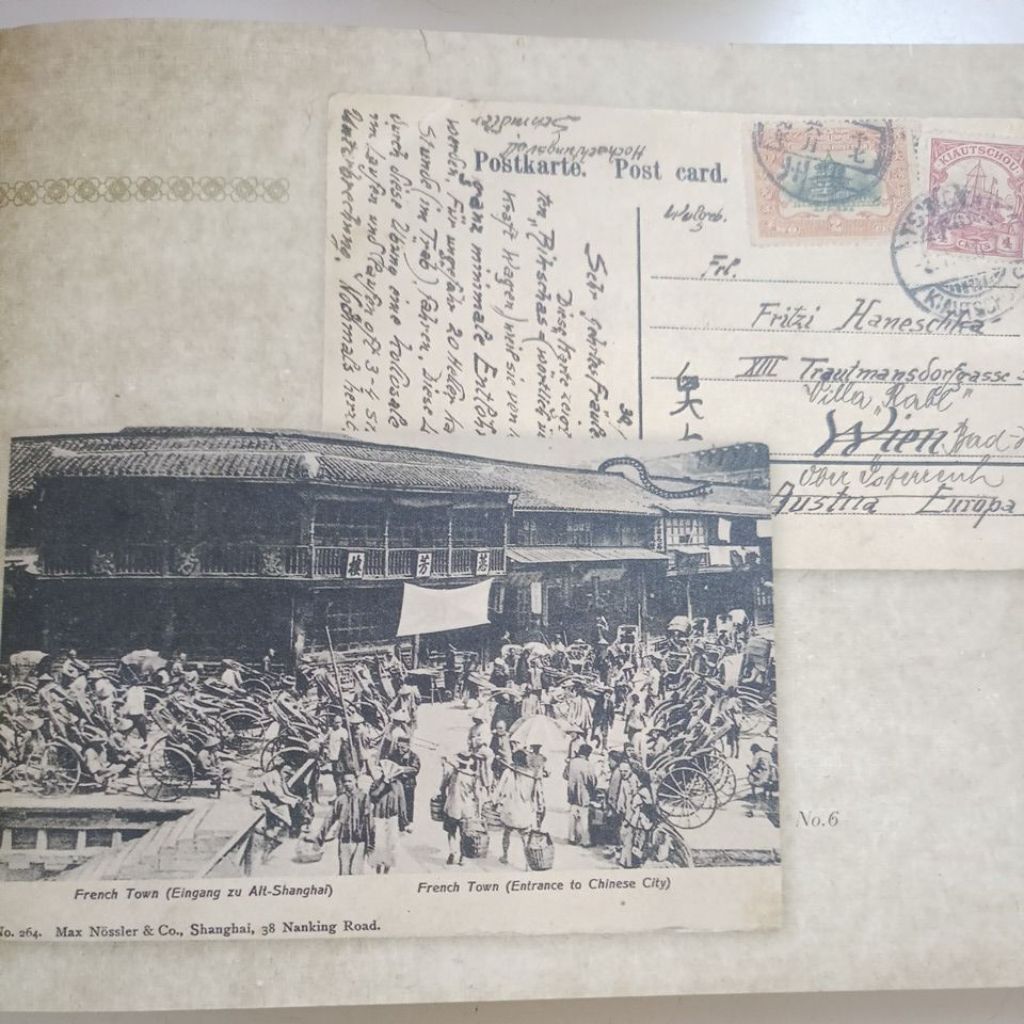 Hochachtungsvoll
Postkarte. Post card.
KIAUTSCHOU
4 CENTS 4
Frl.
Fritzi Haneschka
XIII Trautmansdorfgasse
Villa „Rabl"
Wien Bad
Ober Österreich
Austria Europa
Sehr geehrtes Fräule
Diese Karte zeigt
ten „Rikschas" (wörtlich
Kraft Wagen) weil sie von
ganz minimale Entloh
werden. Für ungefähr 20 Heller ka
Stunde (im Trab) fahren. Diese
durch diese Übung eine kollosale
im Laufen und laufen oft 3-4 St.
Unterbrechung. Nochmals herzl
樓 芳 蕙
French Town (Eingang zu Alt-Shanghai)
French Town (Entrance to Chinese City)
No. 264. Max Nössler & Co., Shanghai, 38 Nanking Road.
No.6